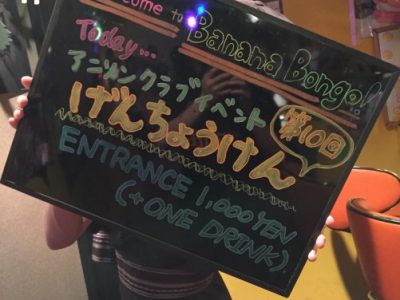 Welcome to
Banana Bongo!
Today...
アニソンクラブイベント
第10回
げんちょうけん
ENTRANCE 1,000YEN
(+ONE DRINK)